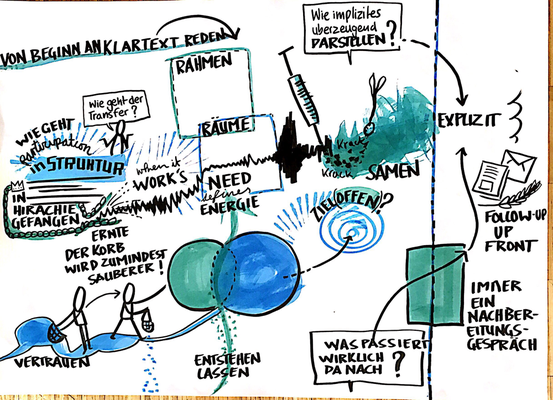 VON BEGINN AN KLARTEXT REDEN
RAHMEN
Wie implizites
überzeugend
DARSTELLEN?
WIE GEHT
participation
in STRUKTUR
Wie geht der
Transfer?
RÄUME
EXPLIZIT
Krack
Krack
SAMEN
when it
WORK'S
NEED
ENERGIE
IN
HIRACHIE
GEFANGEN
ERNTE
DER KORB
WIRD ZUMINDEST
SAUBERER!
ZIELOFFEN?
FOLLOW-UP
UP
FRONT
IMMER
EIN
NACHBER-
EITUNGS-
GESPRÄCH
VERTRAUEN
ENTSTEHEN
LASSEN
WAS PASSIERT
WIRKLICH
DA NACH?